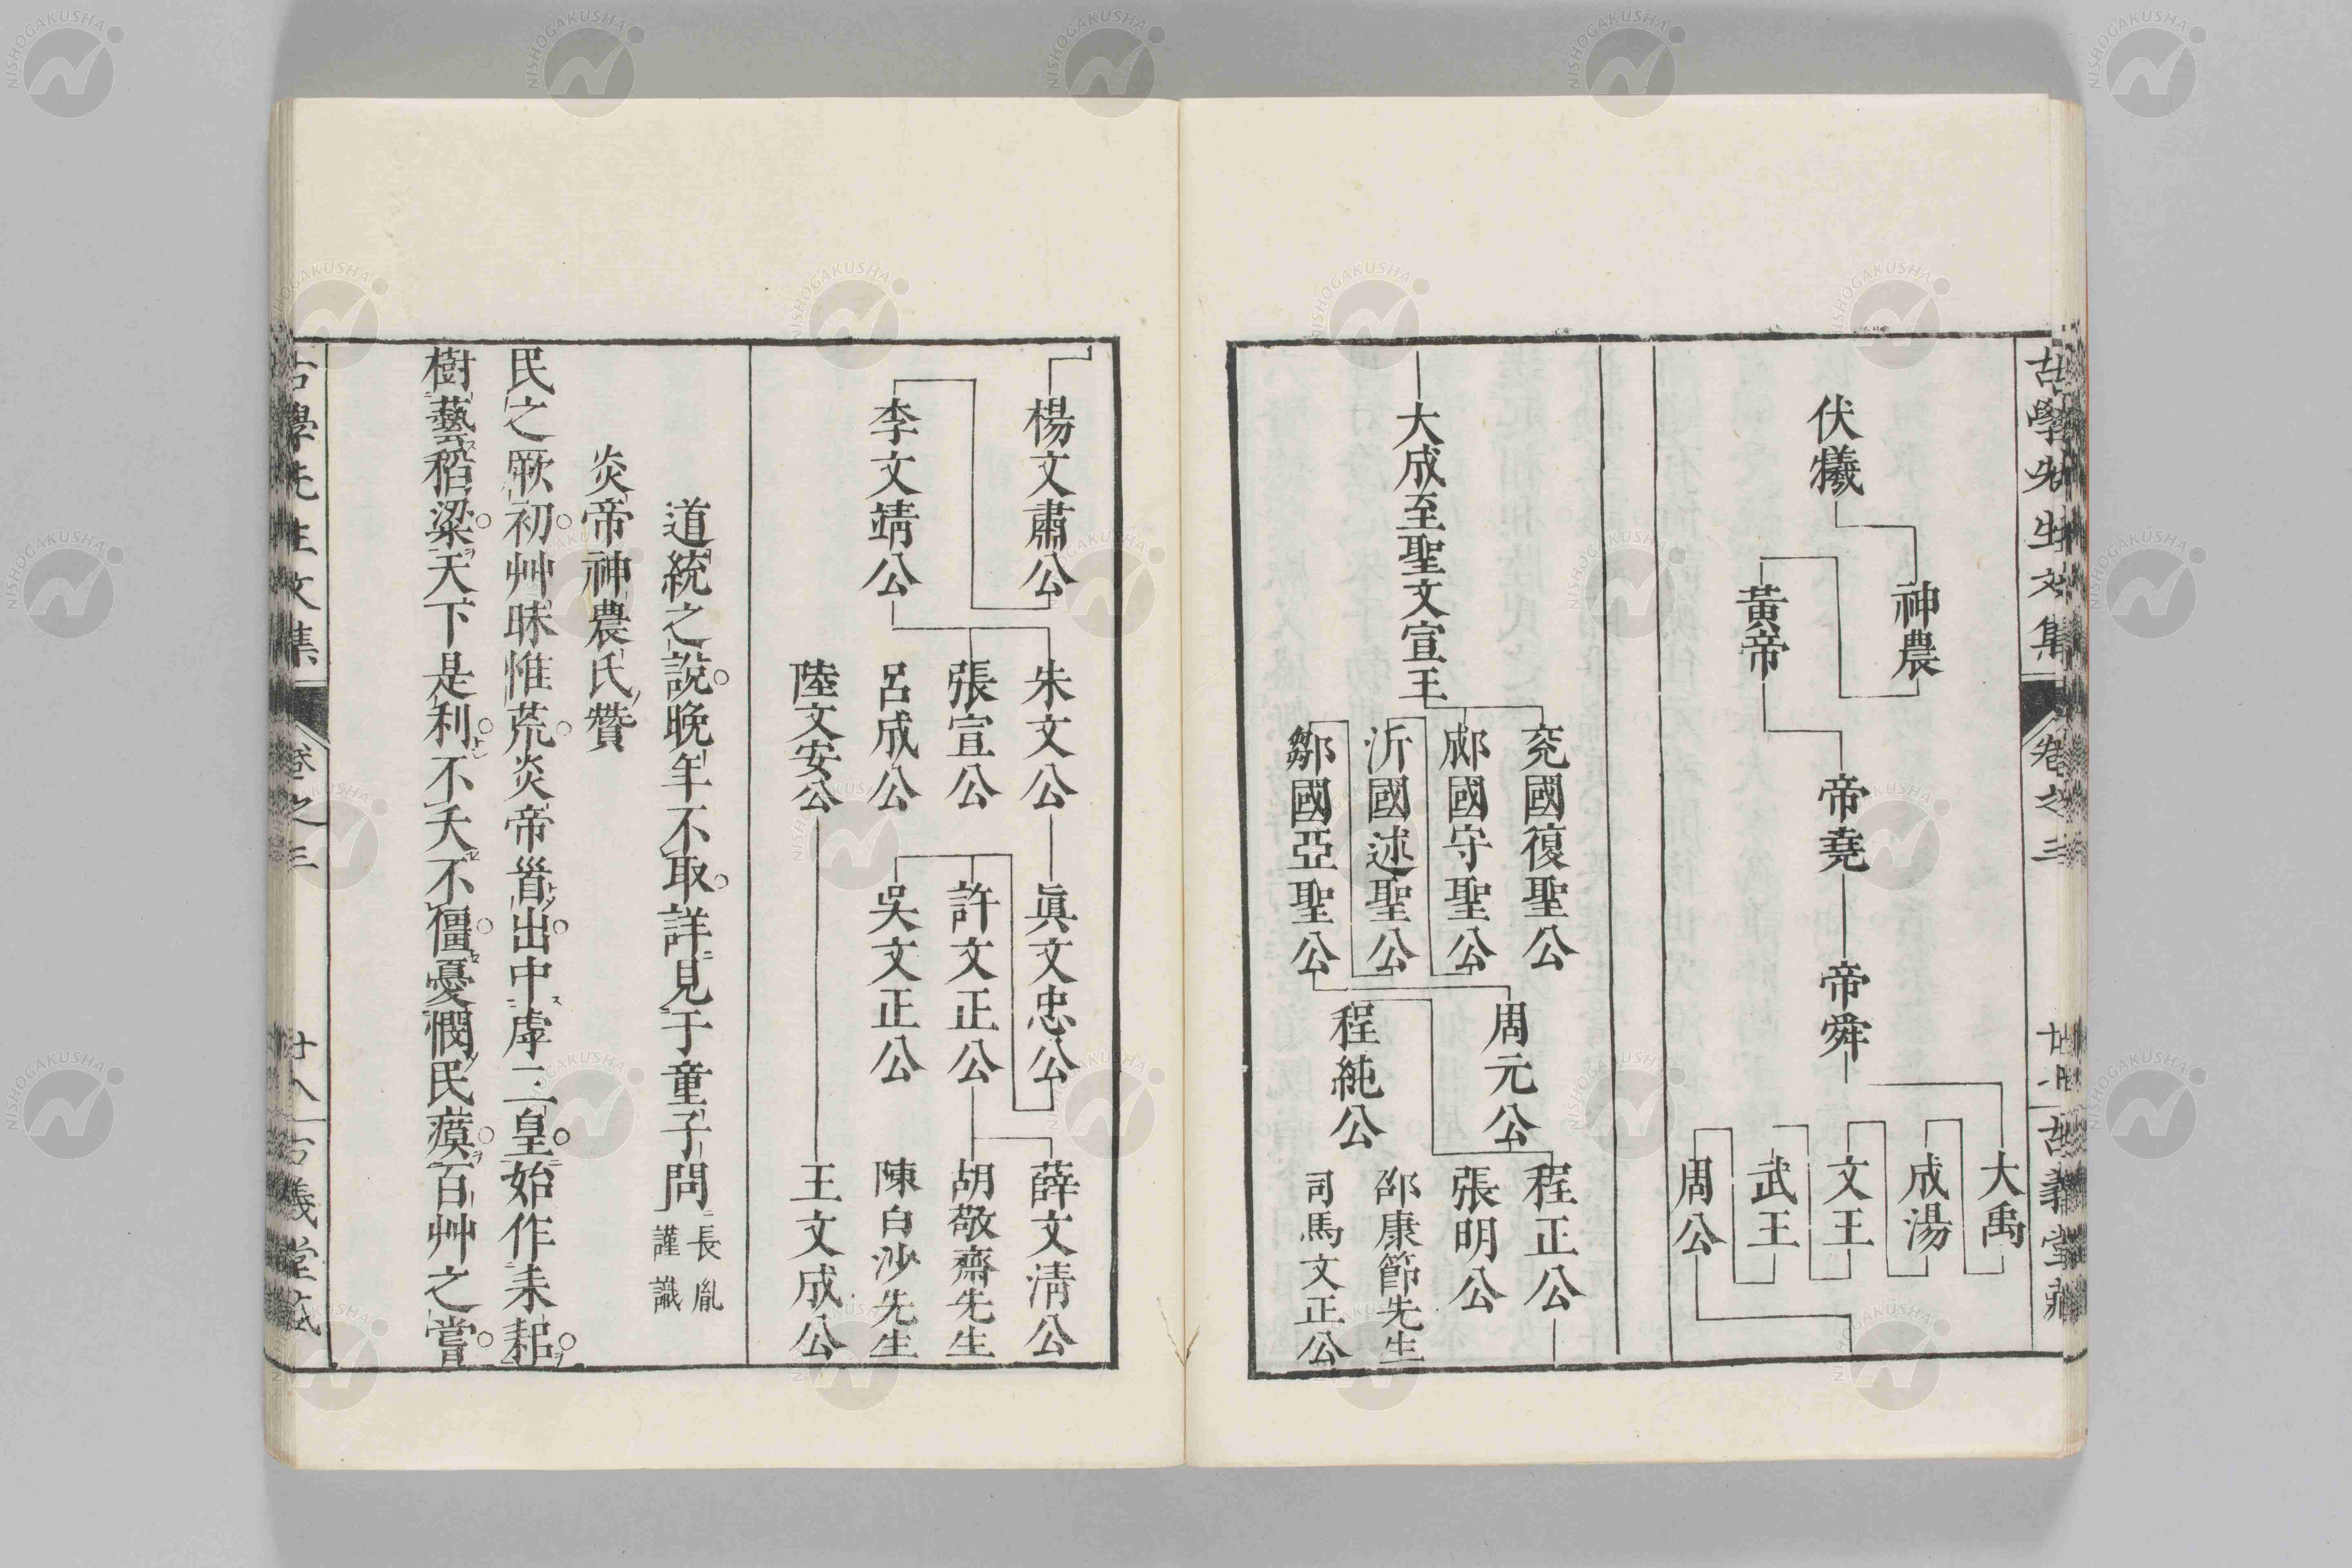 古學先生文集 卷之三 古義堂藏
伏犧
神農
黃帝
帝堯
帝舜
大禹
成湯
文王
武王
周公
大成至聖文宣王
兗國復聖公
郕國守聖公
沂國述聖公
鄒國亞聖公
周元公
程純公
程正公
張明公
邵康節先生
司馬文正公
楊文肅公
李文靖公
朱文公
張宣公
呂成公
陸文安公
眞文忠公
許文正公
吳文正公
薛文淸公
胡敬齋先生
陳白沙先生
王文成公
道統之說晚年不取詳見于童子問
長胤
謹識
炎帝神農氏贊
民之厥初艸昧惟荒炎帝首出中虖二皇始作耒耜
樹藝稻粱天下是利不夭不僵憂憫民瘼百艸之嘗
古學先生文集 卷之三 廿八 古義堂藏
NISHOGAKUSHA